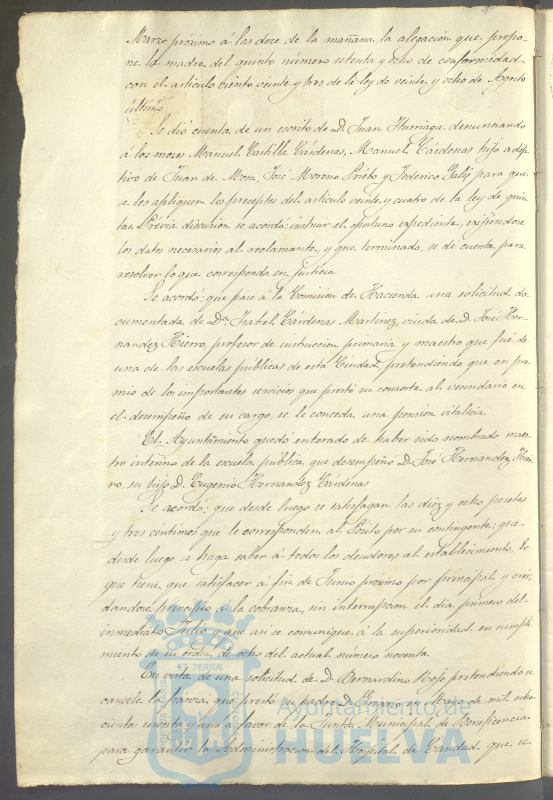 Marzo próximo á las doce de la mañana, la alegación que propo-
ne la madre del quinto número setenta y ocho de conformidad
con el artículo ciento veinte y tres de la ley de veinte y ocho de Agosto
último
Se dió cuenta de un escrito de D. Juan Iturriaga denunciando
á los mozos Manuel Castilla Cárdenas, Manuel Cárdenas hijo adop-
tivo de Juan de Mora, José Moreno Prieto y Federico para que
se les apliquen los preceptos del artículo veinte y cuatro de la ley de quin-
tas. Prévia discusion se acordó: instruir el oportuno expediente, exijiendose
los datos necesarios al reclamante, y que terminado, se dé cuenta para
resolver lo que corresponda en justicia
Se acordó: que pase á la Comision de Hacienda una solicitud do-
cumentada de Dª Isabel Cárdenas Martinez, viuda de D. José Her-
nandez Hierro, profesor de instruccion primaria y maestro que fué de
una de las escuelas públicas de esta Ciudad, pretendiendo que en pre-
mio de los importantes servicios que prestó su consorte al vecindario en
el desempeño de su cargo, se le conceda una pension vitalicia.
El Ayuntamiento quedó enterado de haber sido nombrado maes-
tro interino de la escuela pública que desempeñó D. José Hernandez Hier-
ro, su hijo D. Eugenio Hernandez Cárdenas
Se acordó: que desde luego se satisfagan las diez y ocho pesetas
y tres céntimos que le corresponden al Pósito por su contingente: que
desde luego se haga saber á todos los deudores al establecimiento, lo
que tiene que satisfacer á fin de Junio próximo por principal y creces
dandose principio á la cobranza, sin interrupcion el dia primero del
inmediato Julio y que asi se comunique á la superioridad en cumpli-
miento de su orden de ocho del actual número noventa.
En vista de una solicitud de D. Bernardino Rojo pretendiendo se
cancele la fianza que prestó su padre D. Gregorio en Mayo de mil ocho-
cientos setenta y uno á favor de la Junta Municipal de Beneficencia
para garantir la Administracion del Hospital de Caridad que se
ET TERRÆ
Ayuntamiento de
HUELVA